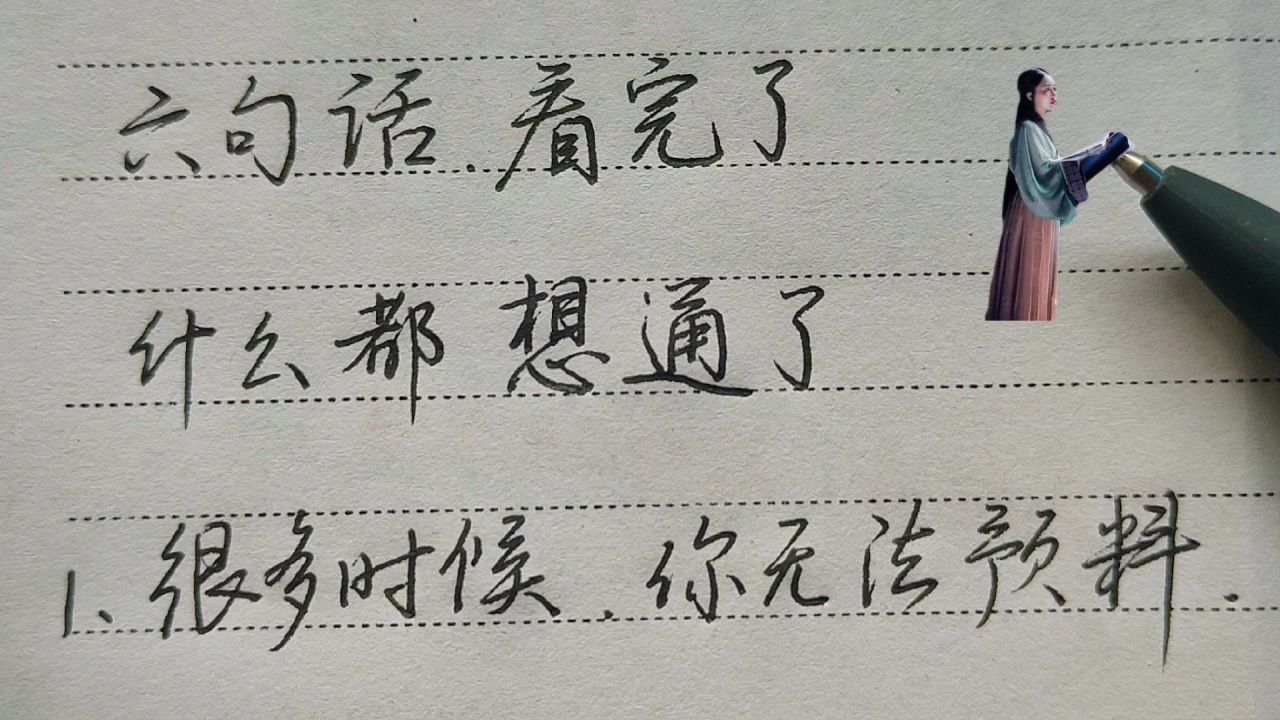 六句话.看完了
什么都想通了
1、很多时候.你无法预料.